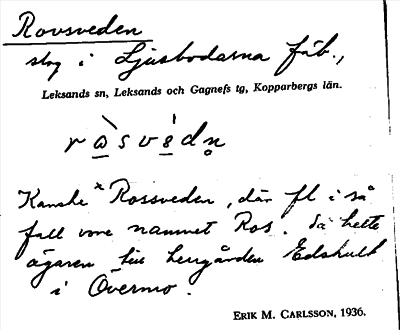 Rovsveden
skog i Ljusbodarna fäb.,
Leksands sn, Leksands och Gagnefs tg, Kopparbergs län.
Kanske *Rossveden, där fl i så
fall vore namnet Ros. Så hette
ägaren till herrgården Edshult
i Övermo.
ERIK M. CARLSSON, 1936.